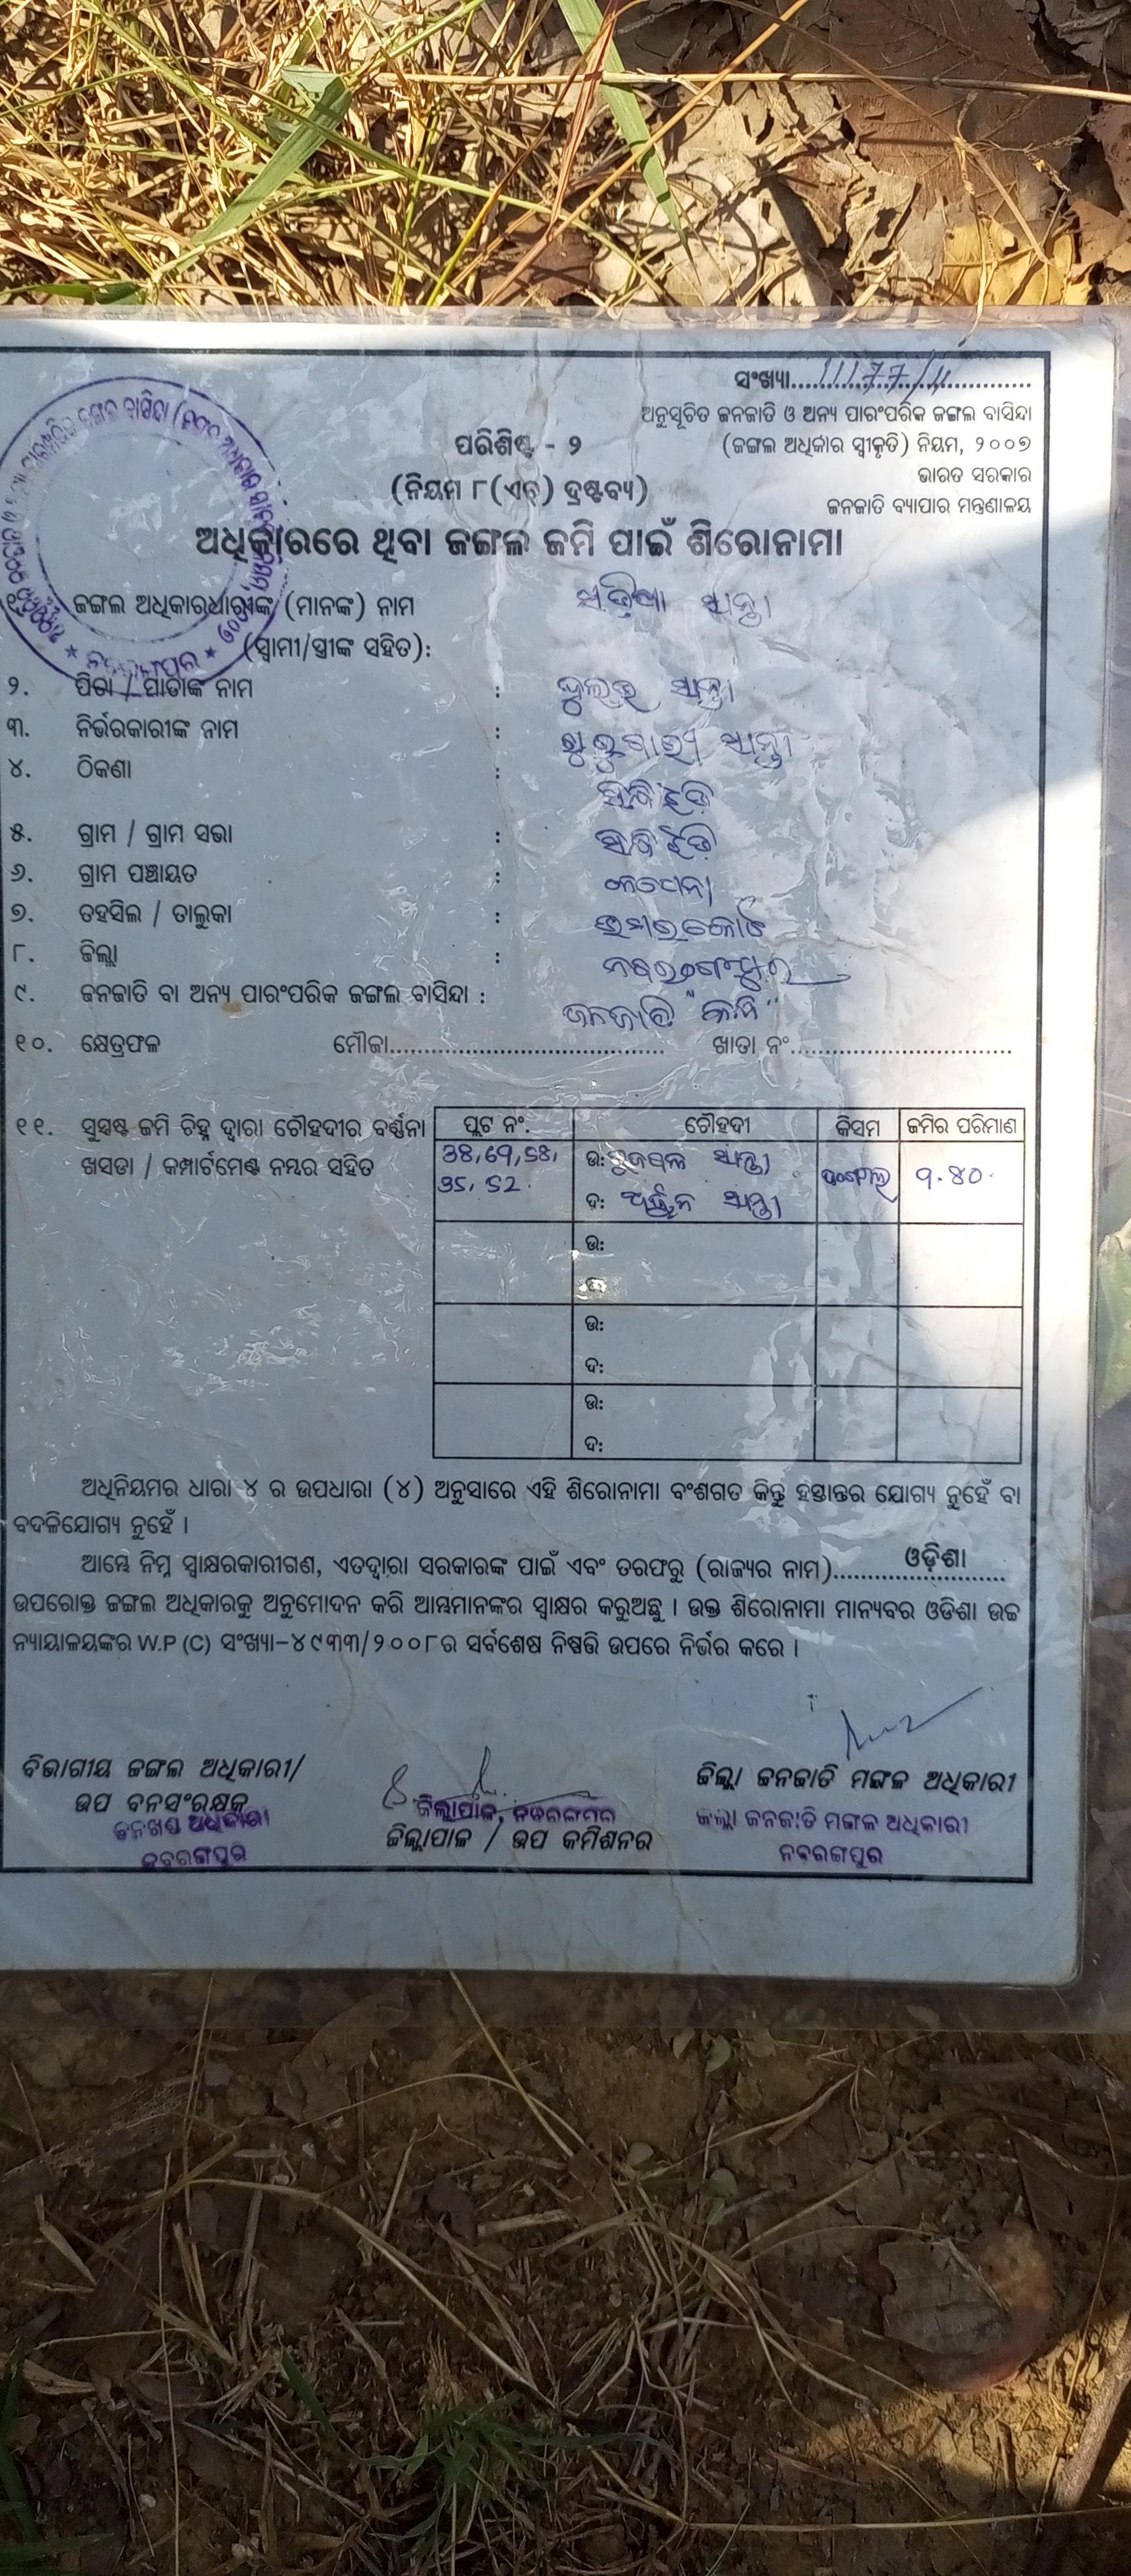 ସଂଖ୍ୟା 11177/11
ଅନୁସୂଚିତ ଜନଜାତି ଓ ଅନ୍ୟ ପାରଂପରିକ ଜଙ୍ଗଲ ବାସିନ୍ଦା
(ଜଙ୍ଗଲ ଅଧିର୍କାର ସ୍ୱୀକୃତି) ନିୟମ, ୨୦୦୭
ଭାରତ ସରକାର
ଜନଜାତି ବ୍ୟାପାର ମନ୍ତ୍ରଣାଳୟ
ପରିଶିଷ୍ଟ - ୨
(ନିୟମ ୮(ଏଚ୍) ଦ୍ରଷ୍ଟବ୍ୟ)
ଅଧିକାରରେ ଥିବା ଜଙ୍ଗଲ ଜମି ପାଇଁ ଶିରୋନାମା
୧. ଜଙ୍ଗଲ ଅଧିକାରଧାରୀଙ୍କ (ମାନଙ୍କ) ନାମ ସାନ୍ତା
(ସ୍ୱାମୀ/ସ୍ତ୍ରୀଙ୍କ ସହିତ):
୨. ପିତା / ମାତାଙ୍କ ନାମ : ସାନ୍ତା
୩. ନିର୍ଭରକାରୀଙ୍କ ନାମ : ଗୁରୁବାରୀ ସାନ୍ତା
୪. ଠିକଣା :
୫. ଗ୍ରାମ / ଗ୍ରାମ ସଭା :
୬. ଗ୍ରାମ ପଞ୍ଚାୟତ :
୭. ତହସିଲ / ତାଲୁକା : ଉମରକୋଟ
୮. ଜିଲ୍ଲା : ନବରଙ୍ଗପୁର
୯. ଜନଜାତି ବା ଅନ୍ୟ ପାରଂପରିକ ଜଙ୍ଗଲ ବାସିନ୍ଦା : ଜନଜାତି
୧୦. କ୍ଷେତ୍ରଫଳ ମୌଜା.................... ଖାତା ନଂ....................
୧୧. ସୁସ୍ପଷ୍ଟ ଜମି ଚିହ୍ନ ଦ୍ୱାରା ଚୌହଦୀର ବର୍ଣ୍ଣନା
ଖସଡା / କମ୍ପାର୍ଟମେଣ୍ଟ ନମ୍ବର ସହିତ
ପ୍ଲଟ ନଂ. ଚୌହଦୀ କିସମ ଜମିର ପରିମାଣ
38, 69, 58, ଉ: ସାନ୍ତା ୧.୪୦
35, 52 ଦ: ଅର୍ଜୁନ ସାନ୍ତା
ଉ:
ଦ:
ଉ:
ଦ:
ଉ:
ଦ:
ଅଧିନିୟମର ଧାରା ୪ ର ଉପଧାରା (୪) ଅନୁସାରେ ଏହି ଶିରୋନାମା ବଂଶଗତ କିନ୍ତୁ ହସ୍ତାନ୍ତର ଯୋଗ୍ୟ ନୁହେଁ ବା
ବଦଳିଯୋଗ୍ୟ ନୁହେଁ ।
ଆମ୍ଭେ ନିମ୍ନ ସ୍ୱାକ୍ଷରକାରୀଗଣ, ଏତଦ୍ୱାରା ସରକାରଙ୍କ ପାଇଁ ଏବଂ ତରଫରୁ (ରାଜ୍ୟର ନାମ) ଓଡ଼ିଶା
ଉପରୋକ୍ତ ଜଙ୍ଗଲ ଅଧିକାରକୁ ଅନୁମୋଦନ କରି ଆମ୍ଭମାନଙ୍କର ସ୍ୱାକ୍ଷର କରୁଅଛୁ । ଉକ୍ତ ଶିରୋନାମା ମାନ୍ୟବର ଓଡିଶା ଉଚ୍ଚ
ନ୍ୟାୟାଳୟଙ୍କର W.P (C) ସଂଖ୍ୟା-୪୯୩୩/୨୦୦୮ର ସର୍ବଶେଷ ନିଷ୍ପତ୍ତି ଉପରେ ନିର୍ଭର କରେ ।
ବିଭାଗୀୟ ଜଙ୍ଗଲ ଅଧିକାରୀ/
ଉପ ବନସଂରକ୍ଷକ
ବନଖଣ୍ଡ ଅଧିକାରୀ
ନବରଙ୍ଗପୁର
ଜିଲ୍ଲାପାଳ, ନବରଙ୍ଗପୁର
ଜିଲ୍ଲାପାଳ / ଉପ କମିଶନର
ଜିଲ୍ଲା ଜନଜାତି ମଙ୍ଗଳ ଅଧିକାରୀ
ଜିଲ୍ଲା ଜନଜାତି ମଙ୍ଗଳ ଅଧିକାରୀ
ନବରଙ୍ଗପୁର